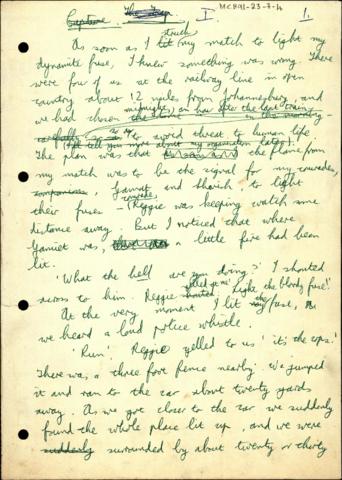 MCH91-23-7-14
Capture. The Trap. I 1.
As soon as I lit struck my match to light my
dynamite fuse, I knew something was wrong. There
were four of us at the railway line in open
country about 12 miles from Johannesburg, and
we had chosen midnight, an hour after the last train
in the morning -
carefully so as to avoid threat to human life.
(I'll tell you more about my organisation later).
The plan was that the flame from
my match was to be the signal for my comrades,
companions, Jamiet and Sharish to light
their fuses - (Reggie was keeping watch some
distance away. But I noticed that where
Jamiet was, a little fire had been
lit.
'What the hell are you doing?' I shouted
across to him. Reggie yelled at me 'Light the bloody fuse!'
At the very moment I lit the fuse,
we heard a loud police whistle.
'Run!' Reggie yelled to us 'it's the cops!'
There was a three foot fence nearby. We jumped
it and ran to the car about twenty yards
away. As we got close to the car we suddenly
found the whole place lit up, and we were
suddenly surrounded by about twenty or thirty